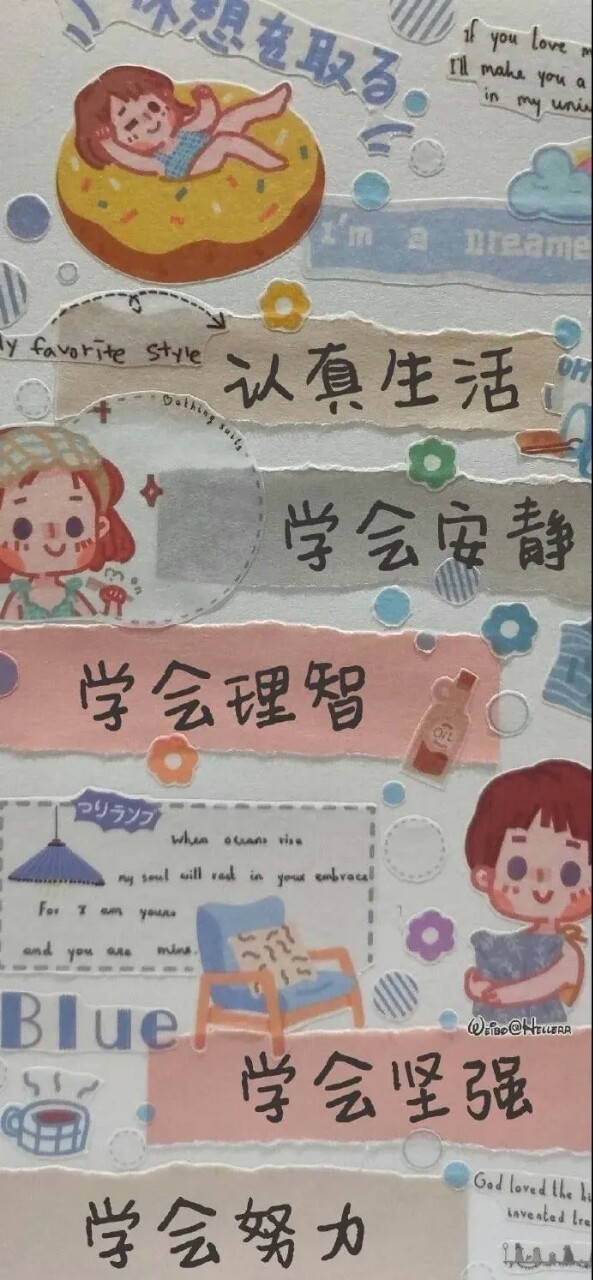 休憩を取る
If you love m
I'll make you a
in my univ
I'm a Dreame
My favorite style
认真生活
OH
Bathing suits
学会安静
学会理智
OIL
つりランプ
When oceans rise
my soul will rest in your embrace
For I am yours
and you are mine.
Blue
WEIBO@HELLERR
学会坚强
God loved the bi
invented tre
学会努力